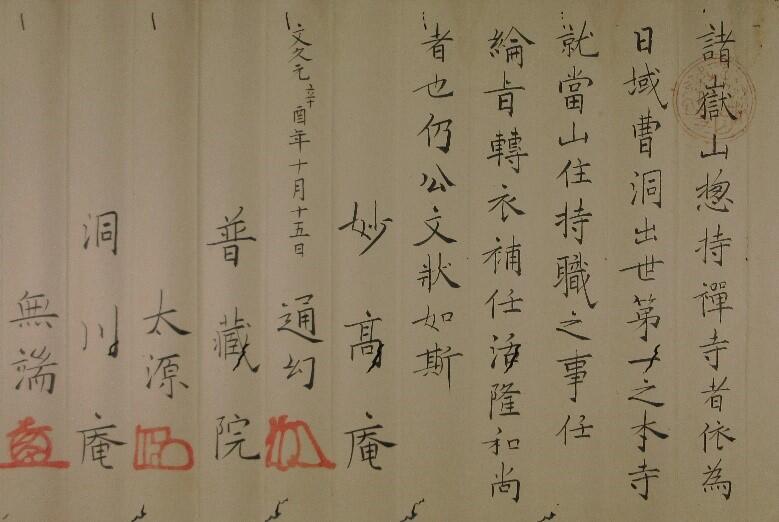 諸嶽山惣持禪寺者依為
日域曹洞出世第一之本寺
就當山住持職之事任
綸旨轉衣補任活隆和尚
者也仍公文狀如斯
妙高庵
文久元辛酉年十月十五日 通幻
普藏院
太源
洞川庵
無端